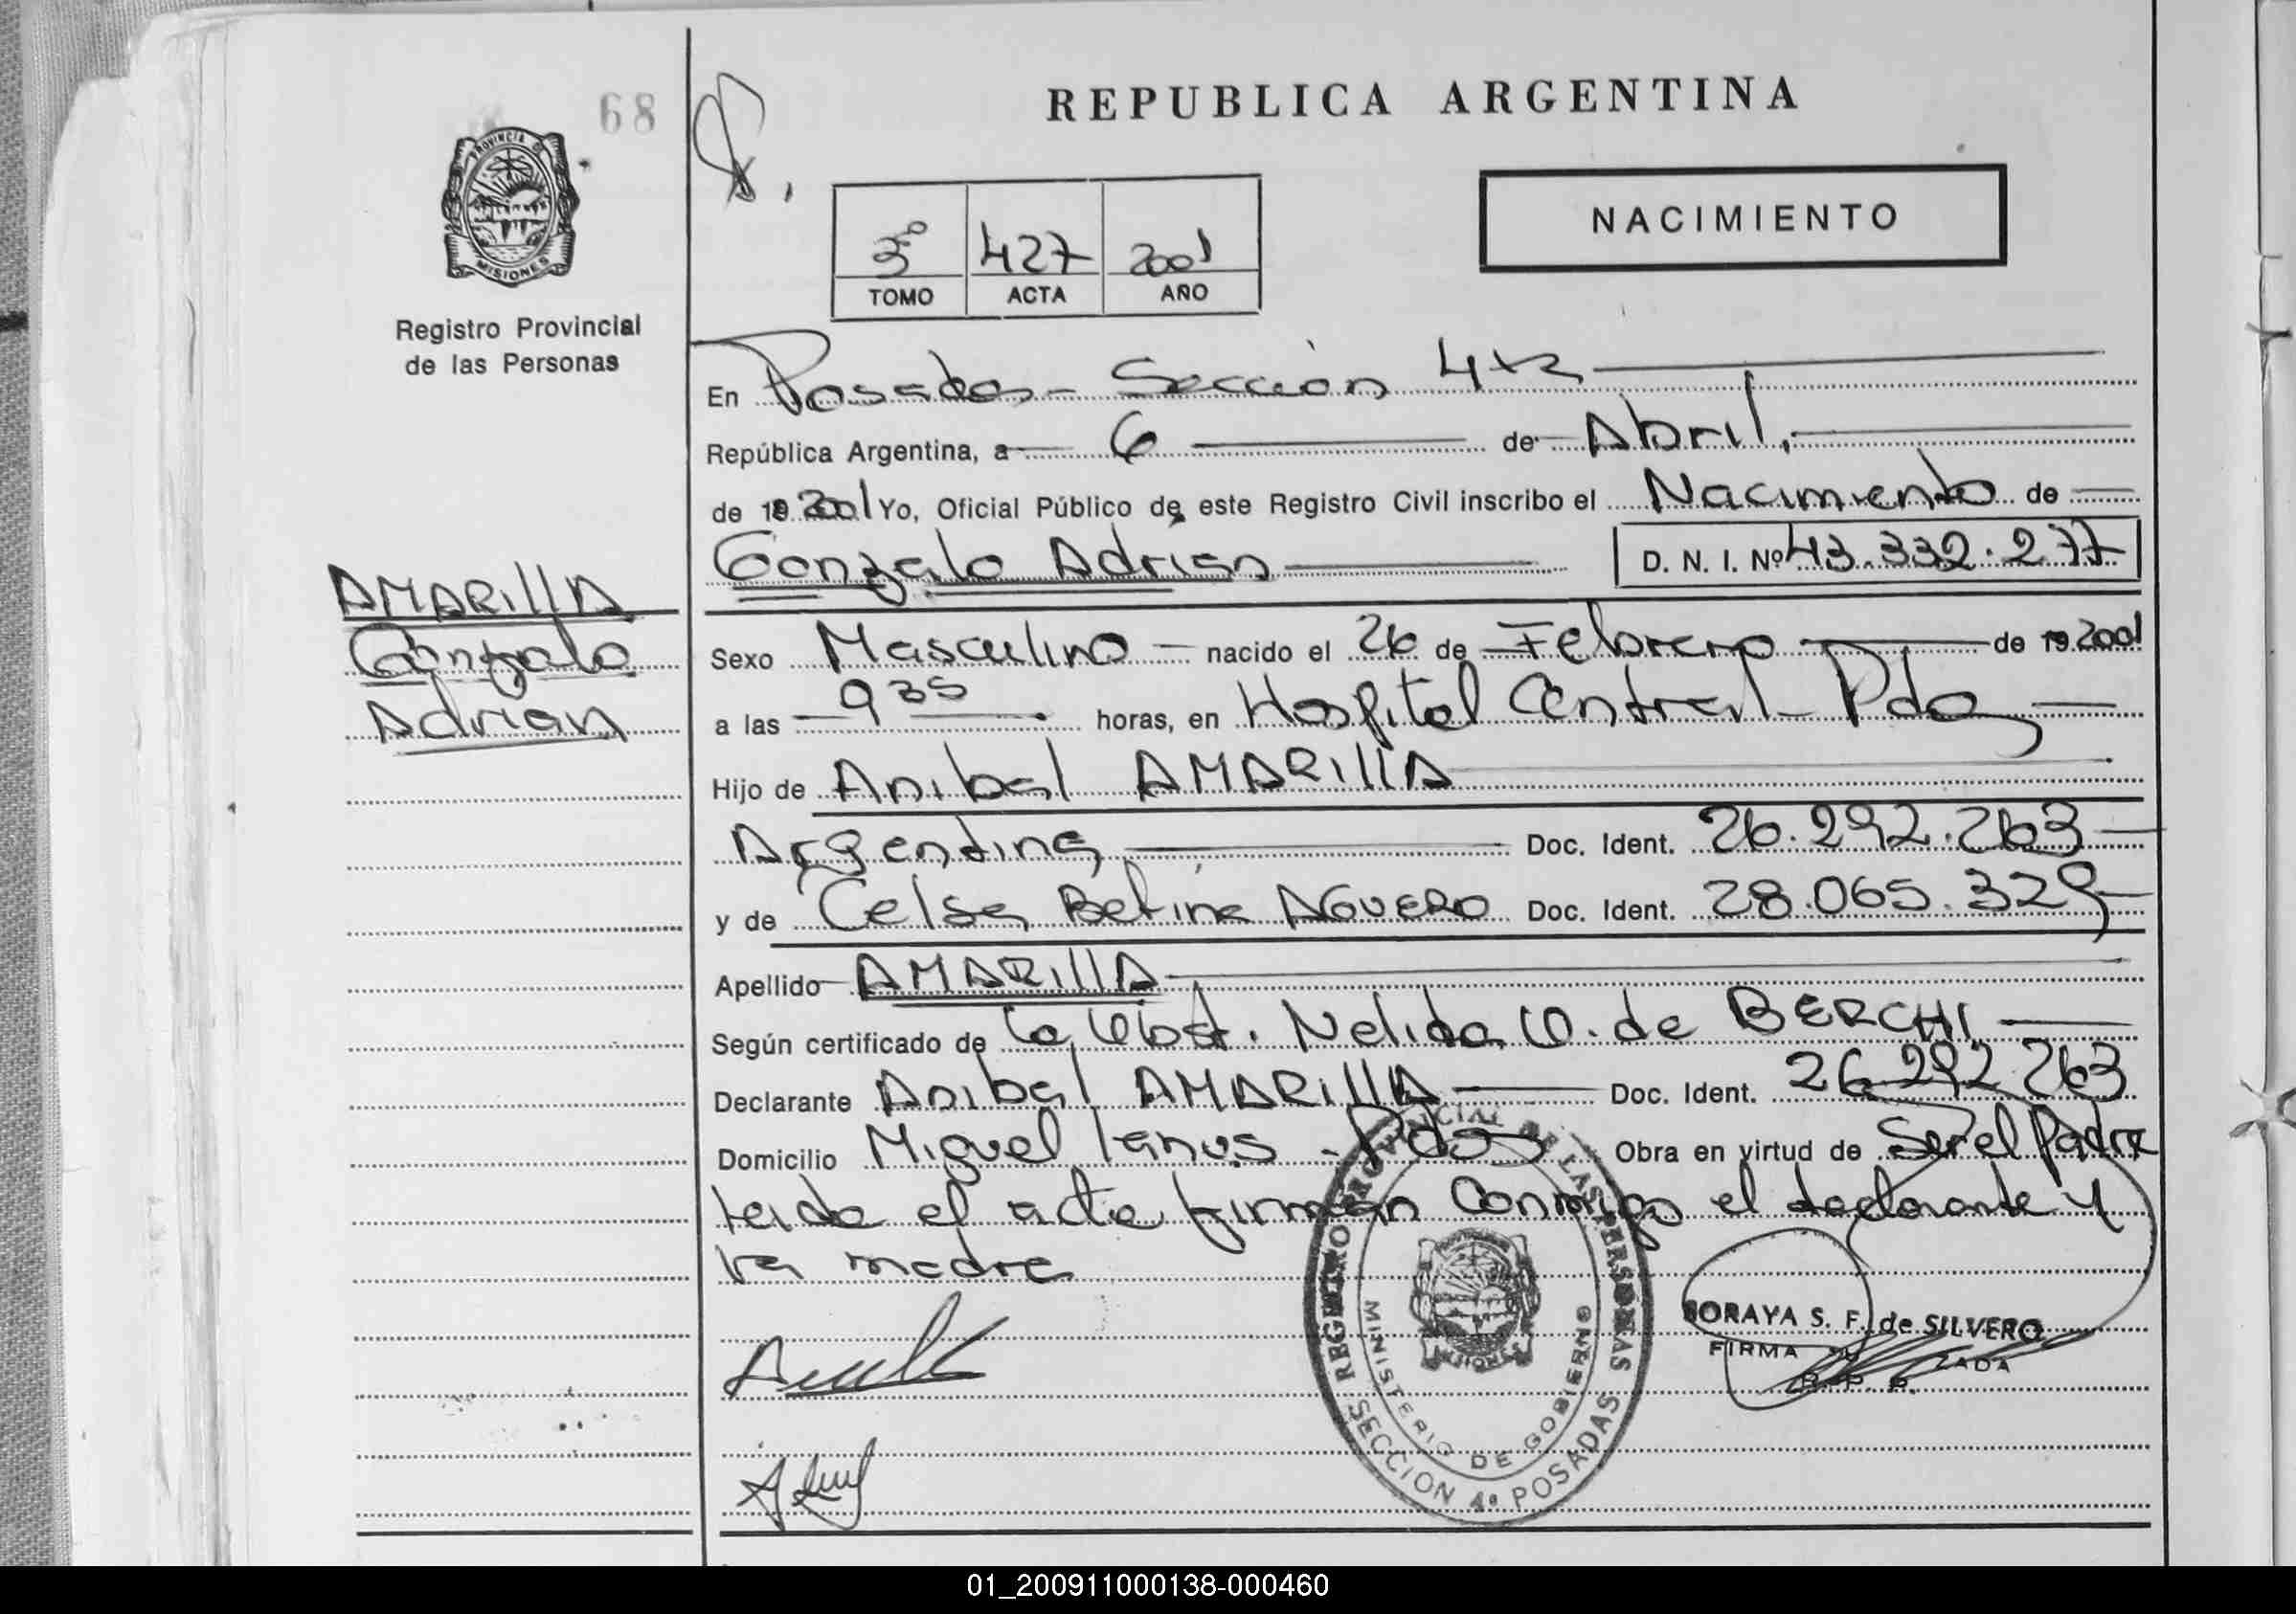 68
REPUBLICA ARGENTINA
PROVINCIA DE
MISIONES
Registro Provincial
de las Personas
3º 427 2001
TOMO ACTA AÑO
NACIMIENTO
En Posadas - Sección 4ta
República Argentina, a 6 de Abril,
de 19 2001 Yo, Oficial Público de este Registro Civil inscribo el Nacimiento de
Gonzalo Adrian D. N. I. Nº 43.332.277
AMARILLA
Gonzalo
Adrian
Sexo Masculino nacido el 26 de Febrero de 19 2001
a las 9 35 horas, en Hospital Central - Pdas
Hijo de Anibal AMARILLA
Argentina Doc. Ident. 26.292.263
y de Celsa Betina AGUERO Doc. Ident. 28.065.329
Apellido AMARILLA
Según certificado de la Obst. Nelida O. de BERCHI
Declarante Anibal AMARILLA Doc. Ident. 26.292.263
Domicilio Miguel Lanus - Pdas Obra en virtud de Ser el Padre
Leida el acta firman Conmigo el declarante y
la madre
REGISTRO PROVINCIAL DE LAS PERSONAS
MINISTERIO DE GOBIERNO
SECCION 4ª POSADAS
MISIONES
SORAYA S. F. de SILVERO
FIRMA
R. P. P.
01_200911000138-000460